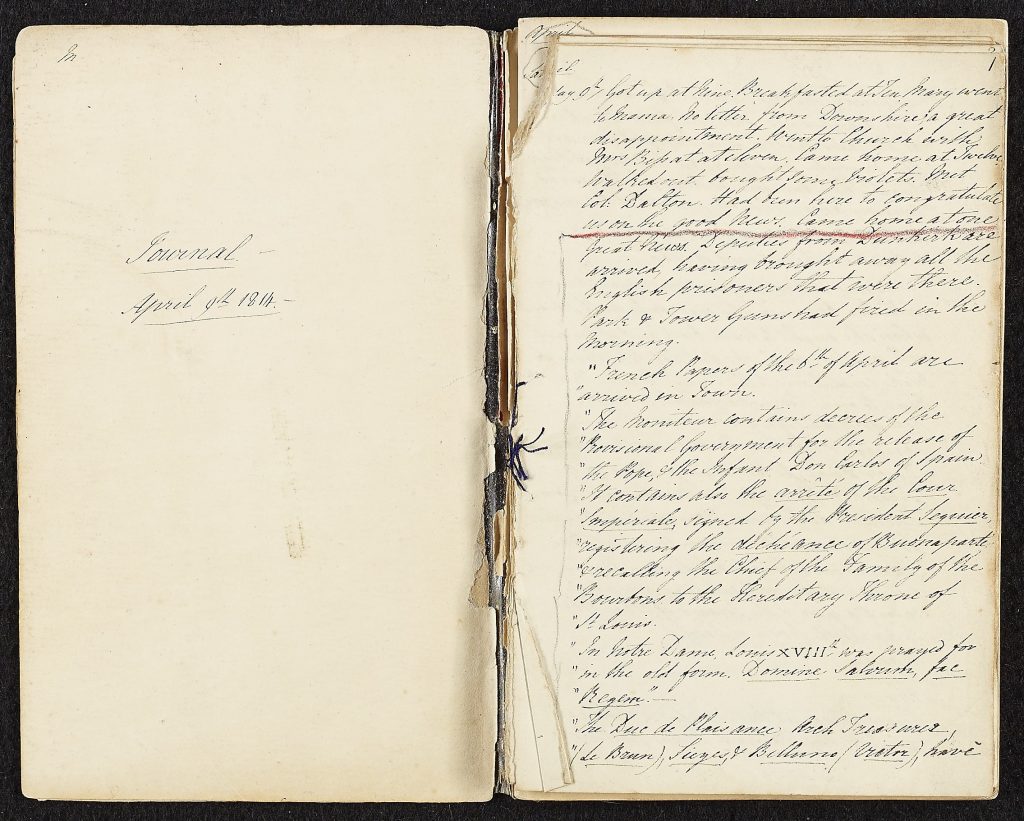 Journal –
April 9th 1814. –
April
April
1
Got up at Nine. Breakfasted at Ten. Mary went
to Mama. No letter from Downshire, a great
disappointment. Went to Church with
Mrs at eleven. Came home at Twelve.
Walked out. bought some Violets. Met
Col. Dalton. Had been here to congratulate
us on the good News. Came home at one
Great News. Deputies from Dunkirk are
arrived, having brought away all the
English prisoners that were there.
Park & Tower Guns had fired in the
Morning.
"French Papers of the 6th of April are
"arrived in Town.
"The Moniteur contains decrees of the
"Provisional Government for the release of
"the Pope, & the Infant Don Carlos of Spain.
"It contains also the arrêté of the Cour
"Impériale, signed by the President Seguier,
"registering the déchéance of Buonaparte
"& recalling the Chief of the Family of the
"Bourbons to the Hereditary Throne of
"St. Louis.
"In Notre Dame, Louis XVIIIth was prayed for
"in the old form. Domine Salvum, fac
"Regem." —
"The Duc de Plaisance Arch Treasurer,
"(Le Brun), Sieyes, & Belluno (Victor), have